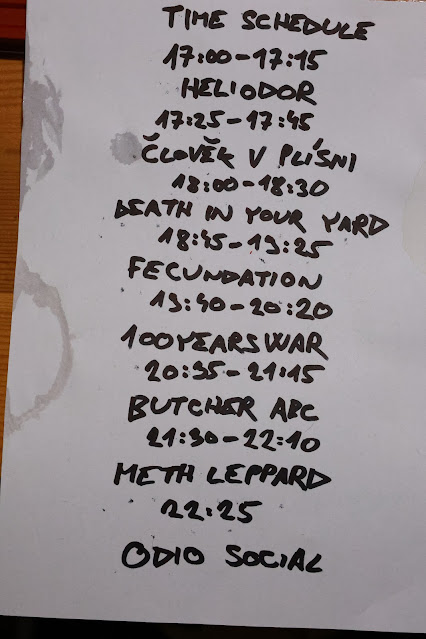 TIME SCHEDULE
17:00-17:15
HELIODOR
17:25-17:45
ČLOVĚK V PLÍSNI
18:00-18:30
DEATH IN YOUR YARD
18:45-19:25
FECUNDATION
19:40-20:20
100YEARSWAR
20:35-21:15
BUTCHER ABC
21:30-22:10
METH LEPPARD
22:25
ODIO SOCIAL